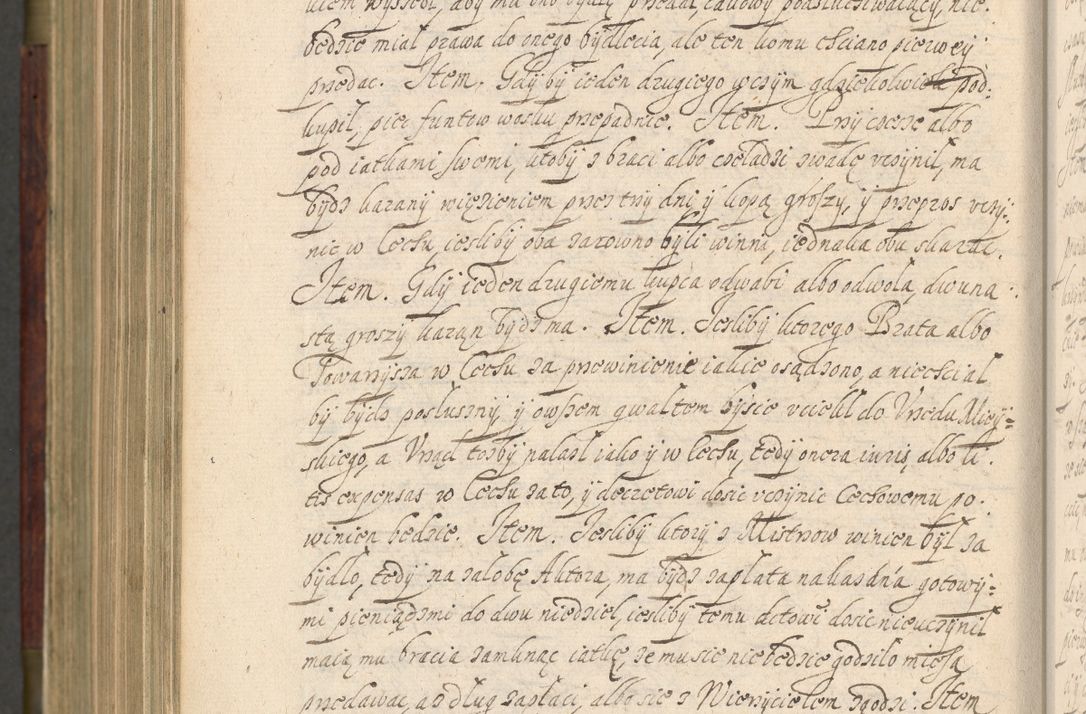 kiem wyszedł, aby mu ono bydle przedał, takowy podsluchiwaiący, nie.
będzie miał prawa do onego bydlecia, ale ten komu chciano pierwey
przedac. Item. Gdyby ieden drugiego wczym gdziekolwiek pod:
kupił, pięc funtow wosku przepadnie. Item. Przy cechzie albo
pod iatkami swemi, ktoby z braci albo czeladzi zwadę vczynił, ma
bydz karany więzieniem przez trzy dni y kopą groszy, y przepros vczy:
nic w Cechu, iesliby oba zarowno byli winni, iednaka obu skarac.
Item. Gdy ieden drugiemu kupca odwabi albo odwoła, dwuna:
stą groszy karan bydz ma. Item. Iesliby ktorego Brata albo
Towarzysza w Cechu za przewinienie iakie osądzono, a niechciał
by bydz posłuszny, y owszem gwałtem bysie vciekł do Vrzedu Miey=
skiego, a Vrząd tozby nalazł iako y w Cechu, tedy onera iuris, albo li:
tis expensas w Cechu za to, y decretowi dosic vczynic Cechowemu po:
winien będzie. Item. Iesliby ktory z Mistrzow winien był za
bydło, tedy na załobę Aktora, ma bydz zapłata nakazana gotowy=
mi pieniądzmi do dwu niedziel, iesliby temu aktowi dosic nie uczynił
maią mu bracia zamknąc iatkę, ze mu sie nie będzie godziło mięsa
przedawac, az dług zapłaci, albo sie z Wierzycielem zgodzi. Item